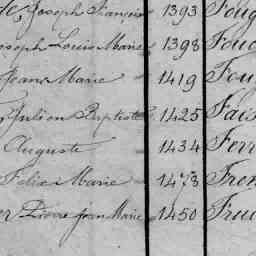 Joseph François 1393 Foug
Joseph Louis Marie 1398 Foug
Jean Marie 1419 Fou
Julien Baptiste 1425 Fais
Auguste 1434 Ferr
Felix Marie 1473 Fren
Pierre Jean Marie 1450 Frue